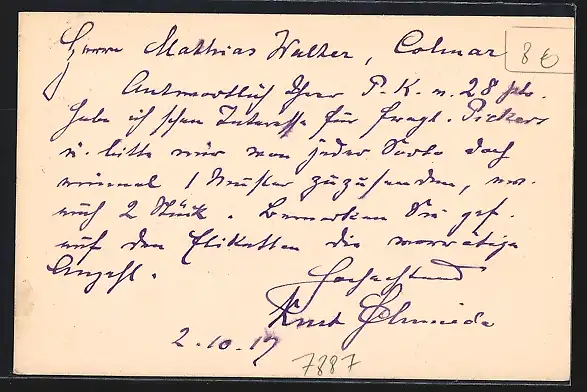 Herrn Mathias Walter, Colmar
8 6
Antwortlich Ihrer P.-K. v. 28 pto.
habe ich schon Interesse für fragl. Pickers
u. bitte mir von jeder Sorte doch
einmal 1 Muster zuzusenden, ev.
auch 2 Stück. Bemerken Sie gef.
auf den Etiketten die vorrätige
Anzahl.
Hochachtend
Kurt Schmieder
2.10.17
7887